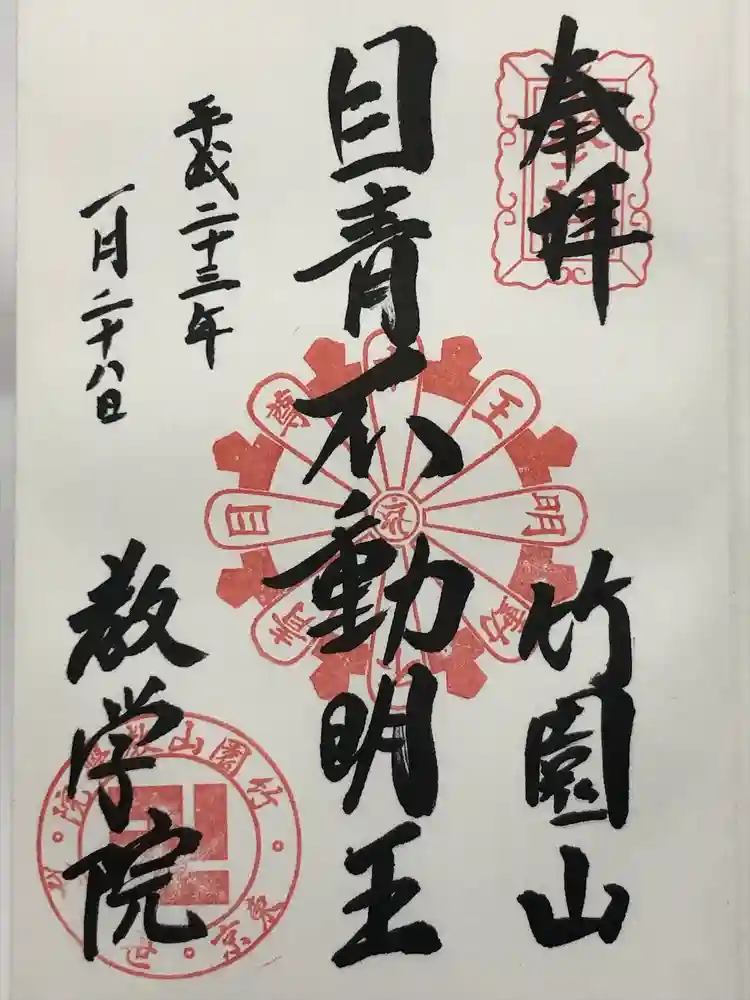 奉拝
竹園山
目青不動明王
平成二十三年
一月二十八日
教学院
目青不動明王尊
竹園山教學院
東京世